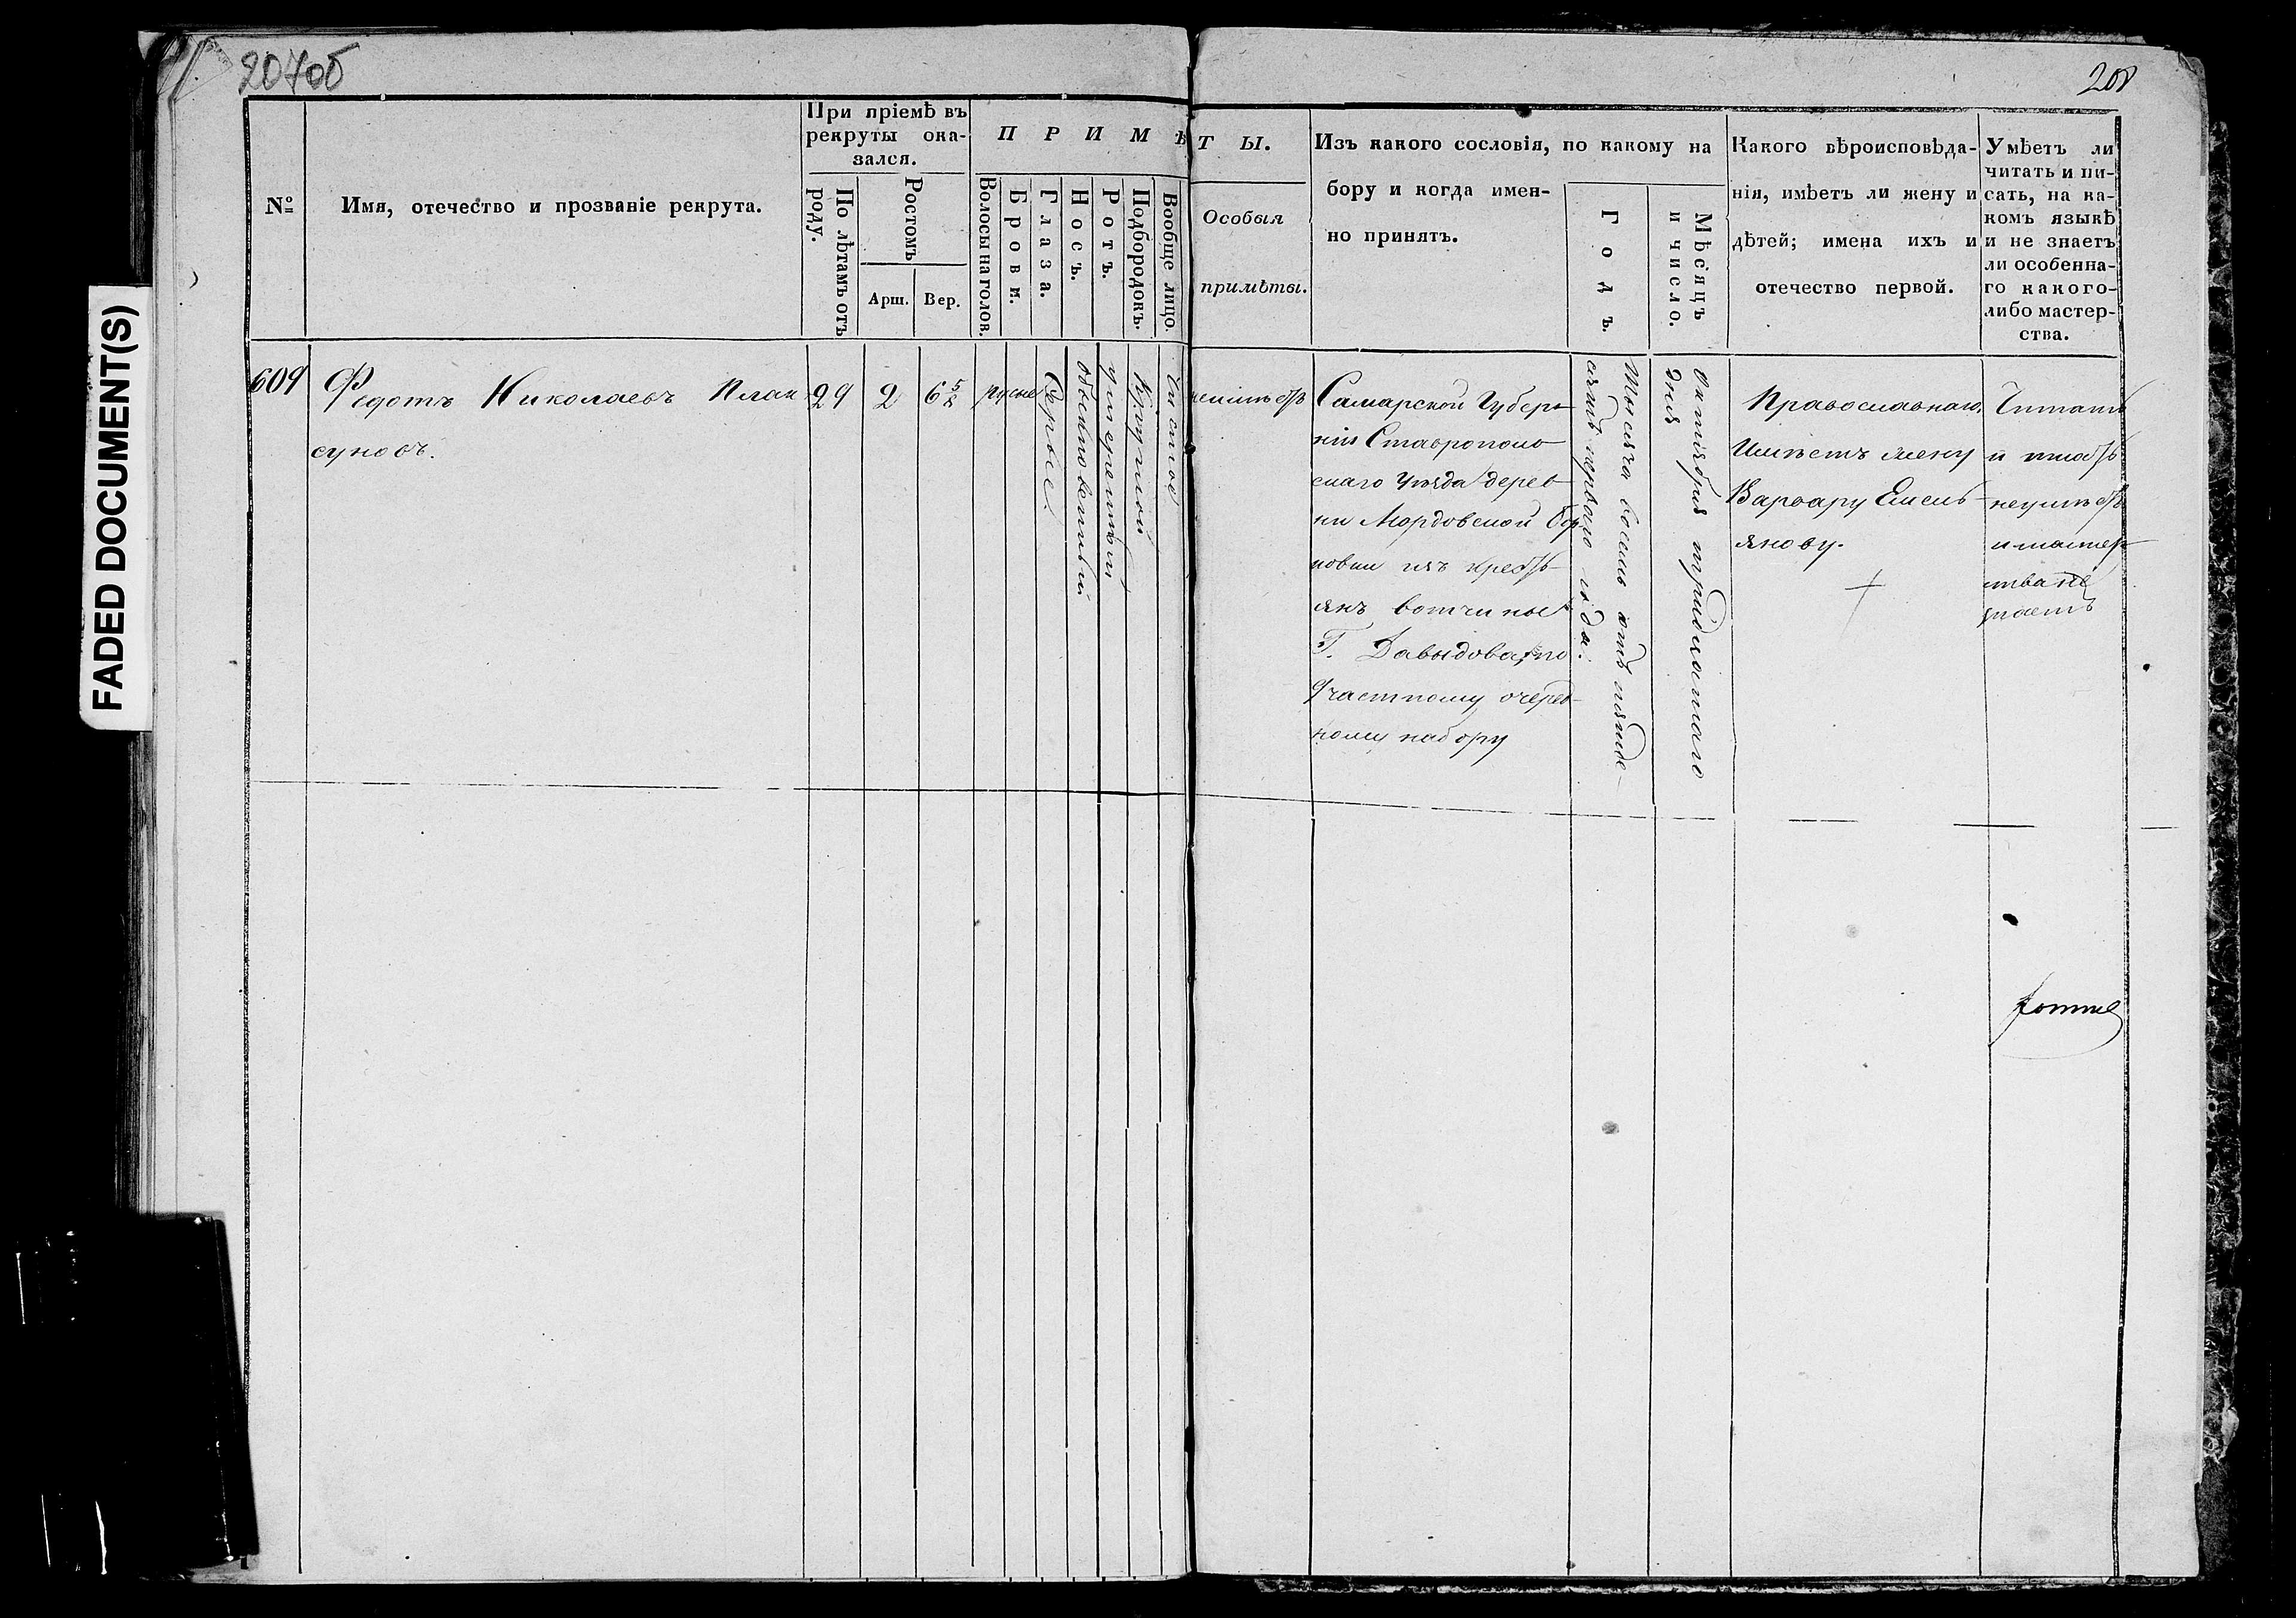 207об
208
FADED DOCUMENT(S)
№
Имя, отечество и прозваніе рекрута.
При пріемѣ въ
рекруты ока-
зался.
По лѣтамъ отъ
роду.
Ростомъ
Арш.
Вер.
ПРИМѢТЫ.
Волосы на голов.
Брови.
Глаза.
Носъ.
Ротъ.
Подбородокъ.
Вообще лицо.
Особыя
примѣты.
Изъ какого сословія, по какому на
бору и когда имен-
но принятъ.
Годъ.
Мѣсяцъ
и число.
Какого вѣроисповѣда-
нія, имѣетъ ли жену и
дѣтей; имена ихъ и
отечество первой.
Умѣетъ ли
читать и пи-
сать, на ка-
комъ языкѣ
и не знаетъ
ли особенна-
го какого-
либо мастер-
ства.
609
Федотъ Николаевъ Плак
суновъ.
29
2
6 5/8
русые
Серые.
обыкновенный
умеренный
Круглой
Чистое
неимѣетъ
Самарской Губер
ніи Ставрополь
скаго Уѣзда дерев
ни Мордовской Бор
ковки изъ кресть
янъ вотчины
Г. Давыдова, по
участному очеред
ному набору
Тысяча восемь сотъ пятде-
сятъ перваго года.
Октября тридцатаго
дня
Православнаго.
Имѣетъ жену
Варвару Емель
янову.
Читать
и писать
неумѣетъ
и мастер
ства не
знаетъ